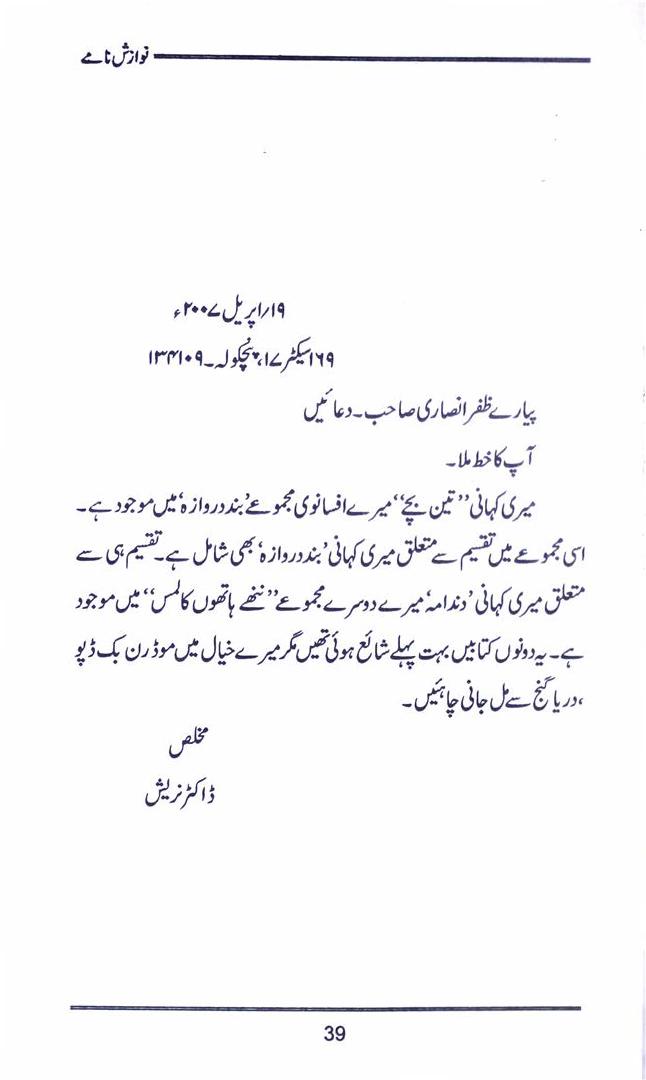 نوازش نامے
۱۹/اپریل ۲۰۰۷ء
۱۶۹سیکٹر ۱۷، پنچکولہ۔ ۱۳۴۱۰۹
پیارے ظفر انصاری صاحب۔ دعائیں
آپ کا خط ملا۔
میری کہانی ’’تین بچے‘‘ میرے افسانوی مجموعے ’بند دروازہ‘ میں موجود ہے۔
اسی مجموعے میں تقسیم سے متعلق میری کہانی ’بند دروازہ‘ بھی شامل ہے۔ تقسیم ہی سے
متعلق میری کہانی ’دندامہ‘ میرے دوسرے مجموعے ’’ننھے ہاتھوں کا لمس‘‘ میں موجود
ہے۔ یہ دونوں کتابیں بہت پہلے شائع ہوئی تھیں مگر میرے خیال میں موڈرن بک ڈپو
،دریا گنج سے مل جانی چاہئیں۔
مخلص
ڈاکٹر نریش
39